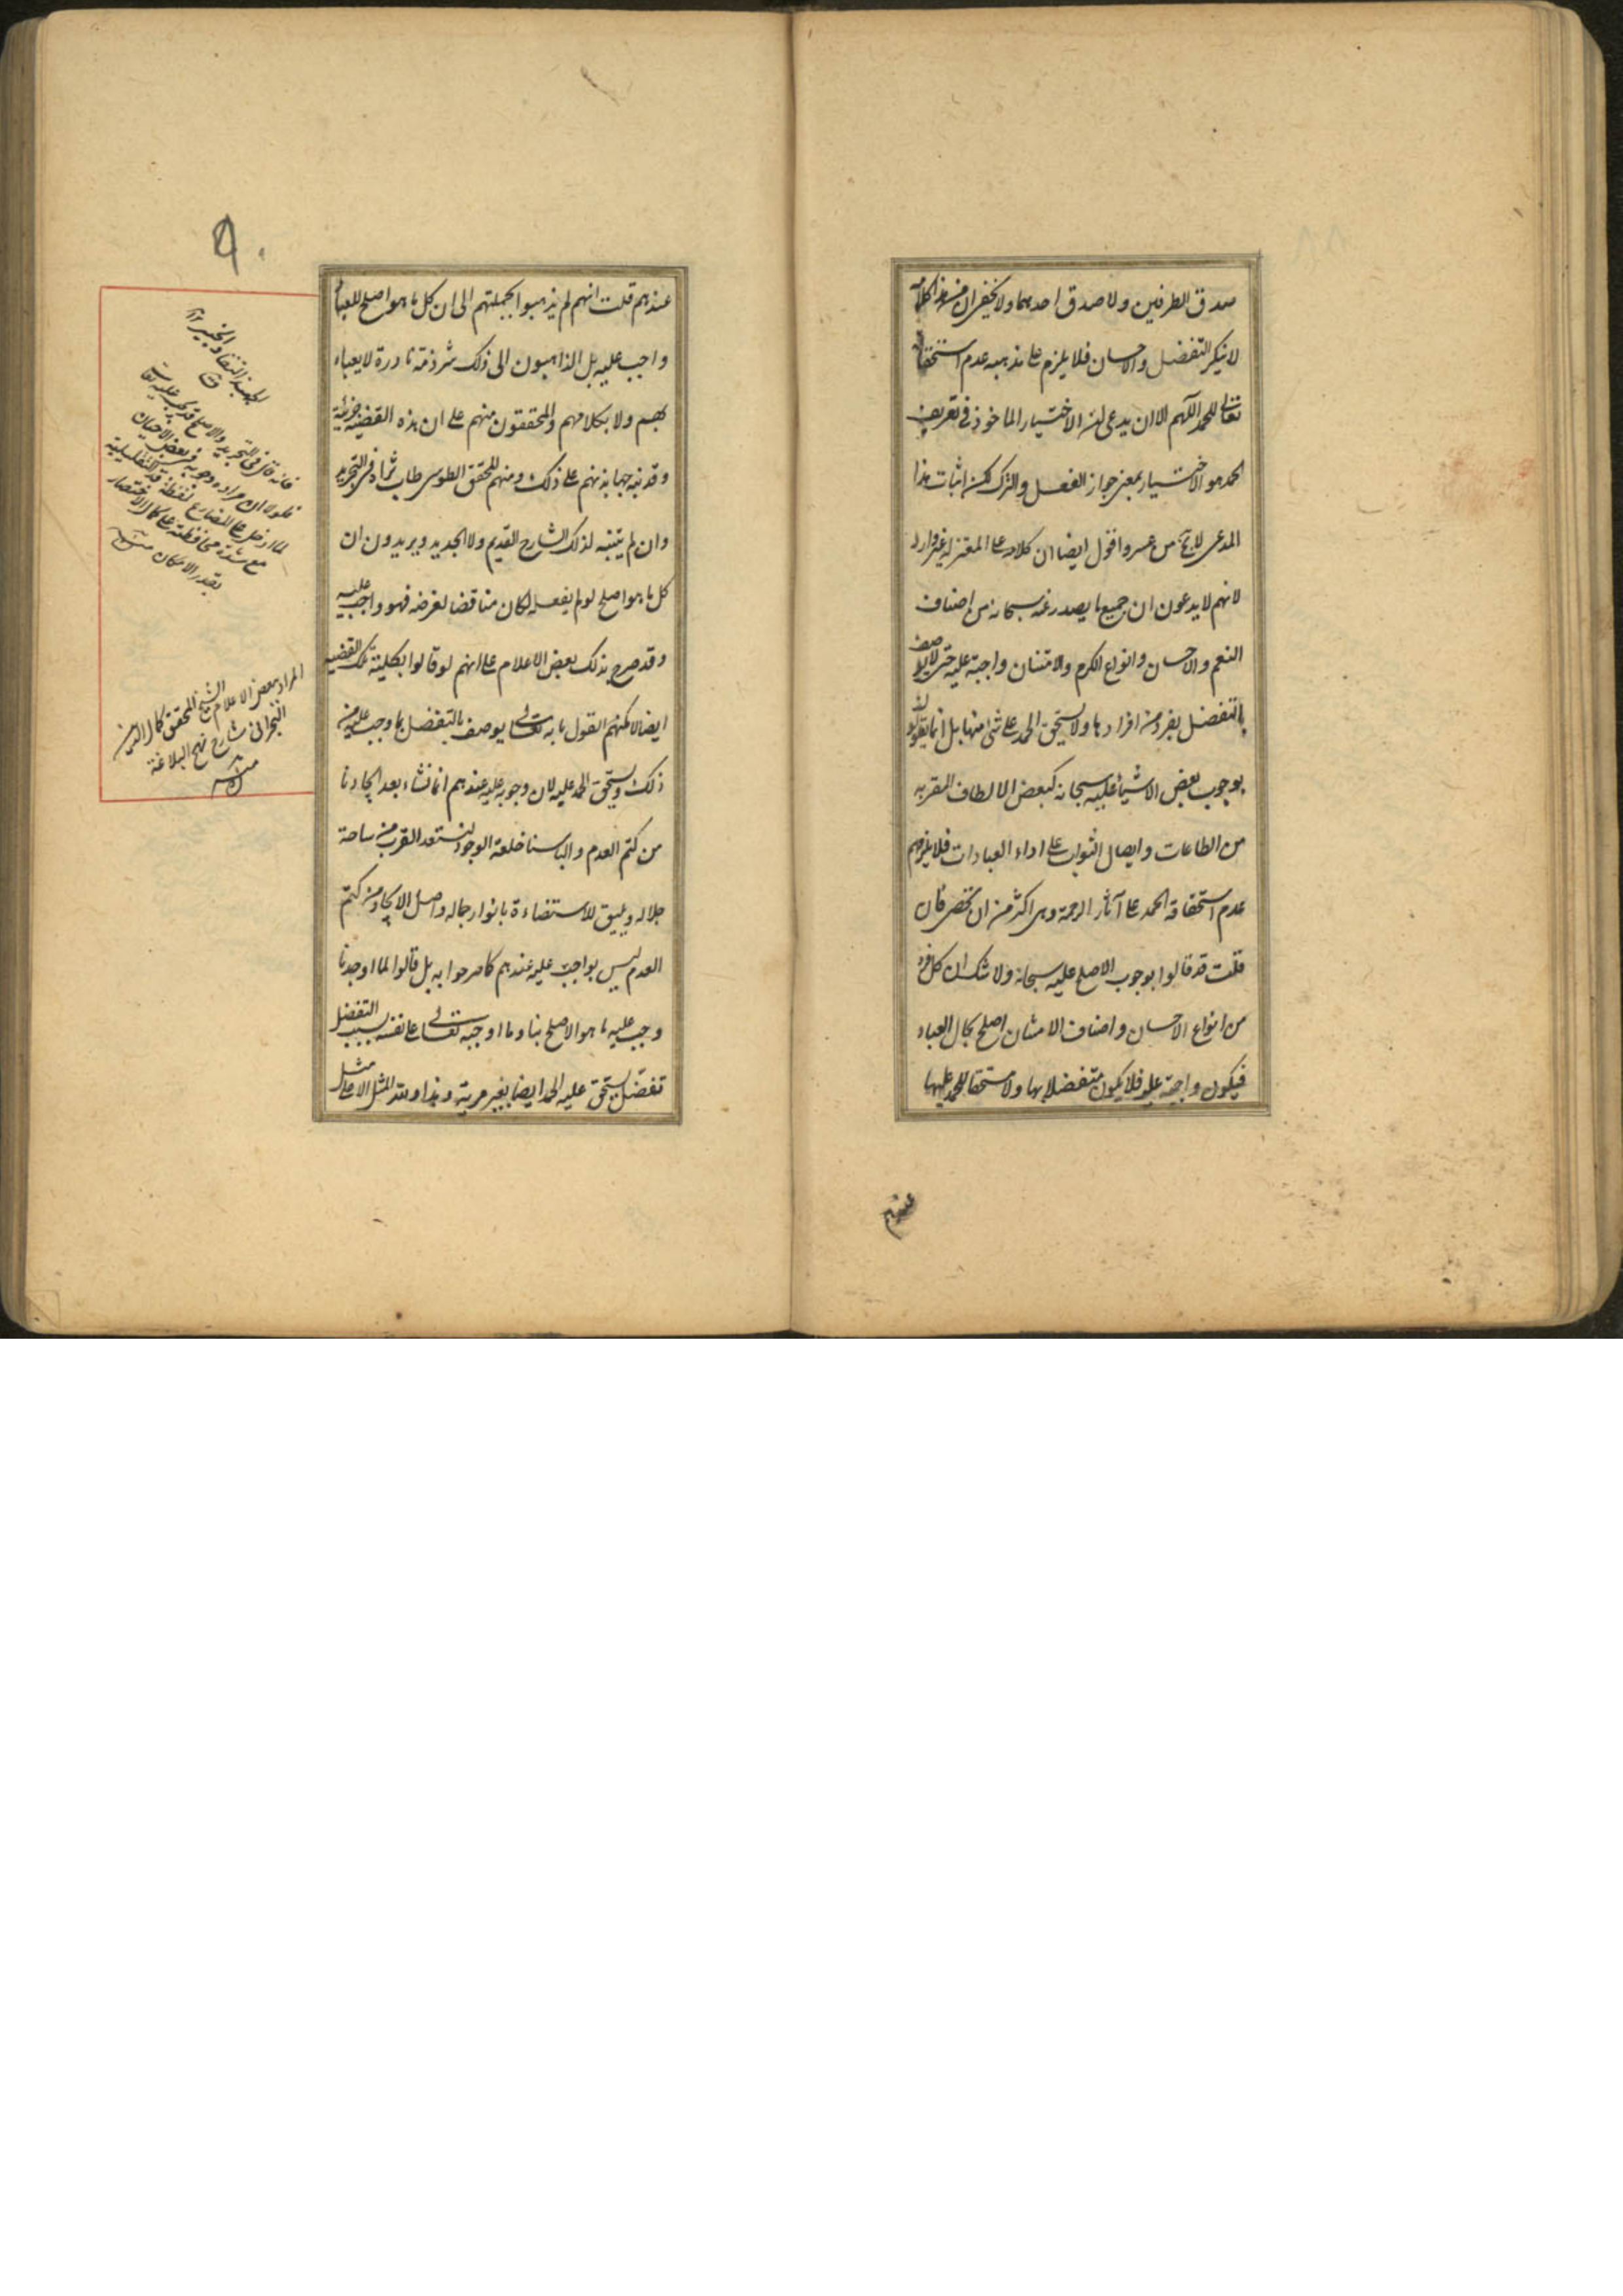 صدق الطرفين ولا صدق احدهما ولا يخفى ان من هذا كلامه
لا ينكر التفضل والاحسان فلا يلزم على مذهبه عدم استحقاقه
تعالى للحمد اللهم الا ان يدعى ان الاختيار الماخوذ في تعريف
الحمد هو الاختيار بمعنى جواز الفعل والترك لكن اثبات هذا
المدعى لا يخ من عسر واقول ايضا ان كلامه على المعتزلة غير وارد
لانهم لا يدعون ان جميع ما يصدر عنه سبحانه من اصناف
النعم والاحسان وانواع الكرم والامتنان واجبة عليه حتى لا يوصف
بالتفضل بفرد من افرادها ولا يستحق الحمد على شئ منها بل انما يقولون
بوجوب بعض الاشياء عليه سبحانه كبعض الالطاف المقربه
من الطاعات وايصال الثواب على اداء العبادات فلا يلزمهم
عدم استحقاقه الحمد على آثار الرحمة وهى اكثر من ان تحصر فان
قلت قد قالوا بوجوب الاصلح عليه سبحانه ولا شك ان كل فرد
من انواع الاحسان واصناف الامتنان اصلح بحال العباد
فيكون واجبة عليه فلا يكون متفضلا بها ولا مستحقا للحمد عليها
عندهم
٩٠
عندهم قلت انهم لم يذهبوا بجملتهم الى ان كل ما هو اصلح للعباد
واجب عليه بل الذاهبون الى ذلك شرذمة نادرة لا يعباء
بهم ولا بكلامهم والمحققون منهم على ان هذه القضية جزئية
وقد نبه جهابذتهم على ذلك ومنهم المحقق الطوسى طاب ثراه فى التجريد
وان لم يتنبه لذلك الشارح القديم ولا الجديد ويريدون ان
كل ما هو اصلح لو لم يفعله لكان مناقضا لغرضه فهو واجب عليه
وقد صرح بذلك بعض الاعلام على انهم لو قالوا بكلية تلك القضيه
ايضا لامكنهم القول بانه تعالى يوصف بالتفضل بما وجب عليه من
ذلك ويستحق الحمد عليه لان وجوبه عليه عندهم انما نشاء بعد ايجادنا
من كتم العدم والباسنا خلعة الوجود لنستعد القرب من ساحة
جلاله ويليق للاستضاءة بانوار جماله واصل الايجاد من كتم
العدم ليس بواجب عليه عندهم كما صرحوا به بل قالوا لما اوجدنا
وجب عليه ما هو الاصلح بنا وما اوجبه تعالى على نفسه بسبب التفضل
تفضل يستحق عليه الحمد ايضا بغير مرية وهذا ولله المثل الاعلى مثل
الجهبذ النقاد الخبير
فانه قال فى التجريد والاصلح قد يجب عليه تعالى
فلولا ان مراده وجوبه فى بعض الاحيان
لما ادخل على المضارع لفظة قد التقليلية
مع شدة محافظته على كمال الاختصار
بقدر الامكان منه
المراد ببعض الاعلام الشيخ المحقق كمال الدين
البحرانى شارح نهج البلاغة
منه